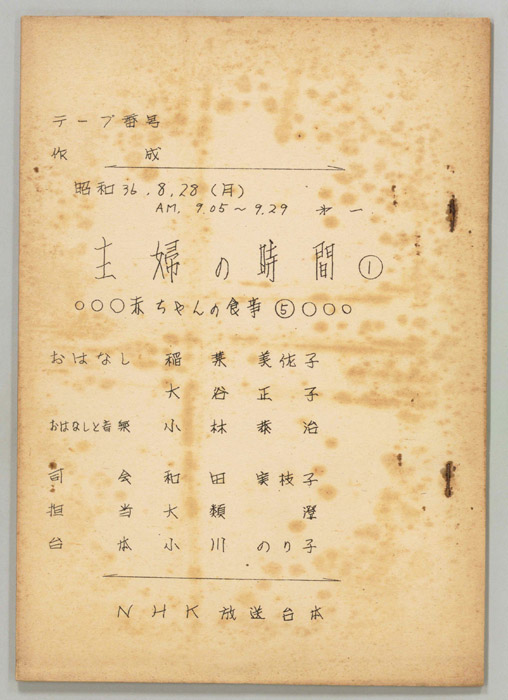 テープ番号
作成
昭和36.8.28(月)
AM. 9.05～9.29 オ一
主婦の時間①
○○○赤ちゃんの食事⑤○○○
おはなし 稲葉美佐子
大谷正子
おはなしと音楽 小林泰治
司会 和田実枝子
担当 大類 澄
台本 小川のり子
NHK放送台本